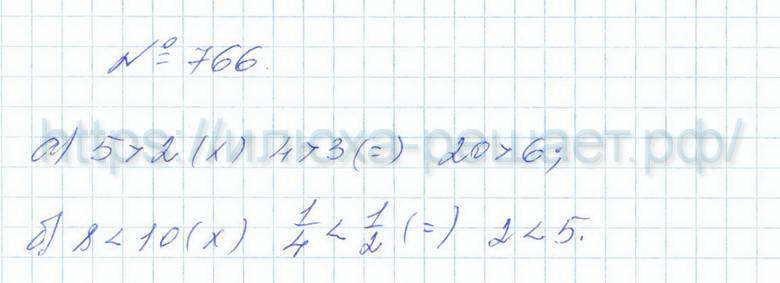 № 766.
https://илюха-решает.рф/
а) 5 > 2 (x) 4 > 3 (=) 20 > 6;
б) 8 < 10 (x) 1/4 < 1/2 (=) 2 < 5.